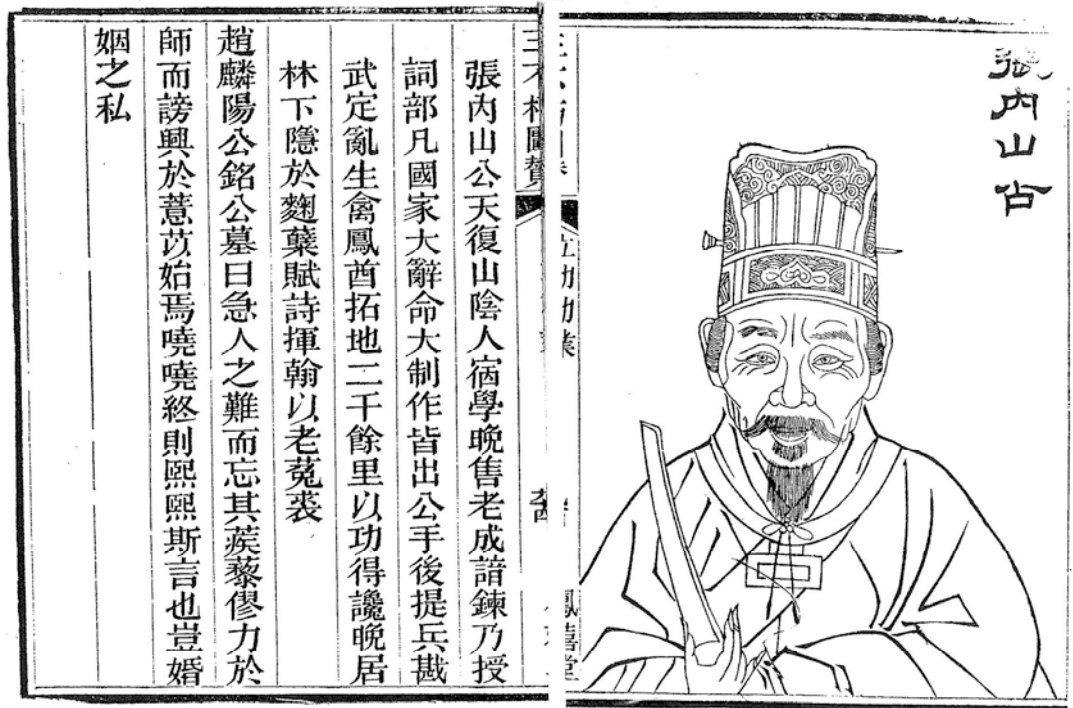 張内山公
三不朽圖贊
張内山公天復山陰人宿學晚售老成諳鍊乃授
詞部凡國家大辭命大制作皆出公手後提兵戡
武定亂生禽鳳酋拓地二千餘里以功得讒晚居
林下隱於麴蘖賦詩揮翰以老菟裘
趙麟陽公銘公墓曰急人之難而忘其蒺藜僇力於
師而謗興於薏苡始焉嘵嘵終則熙熙斯言也豈婚
姻之私